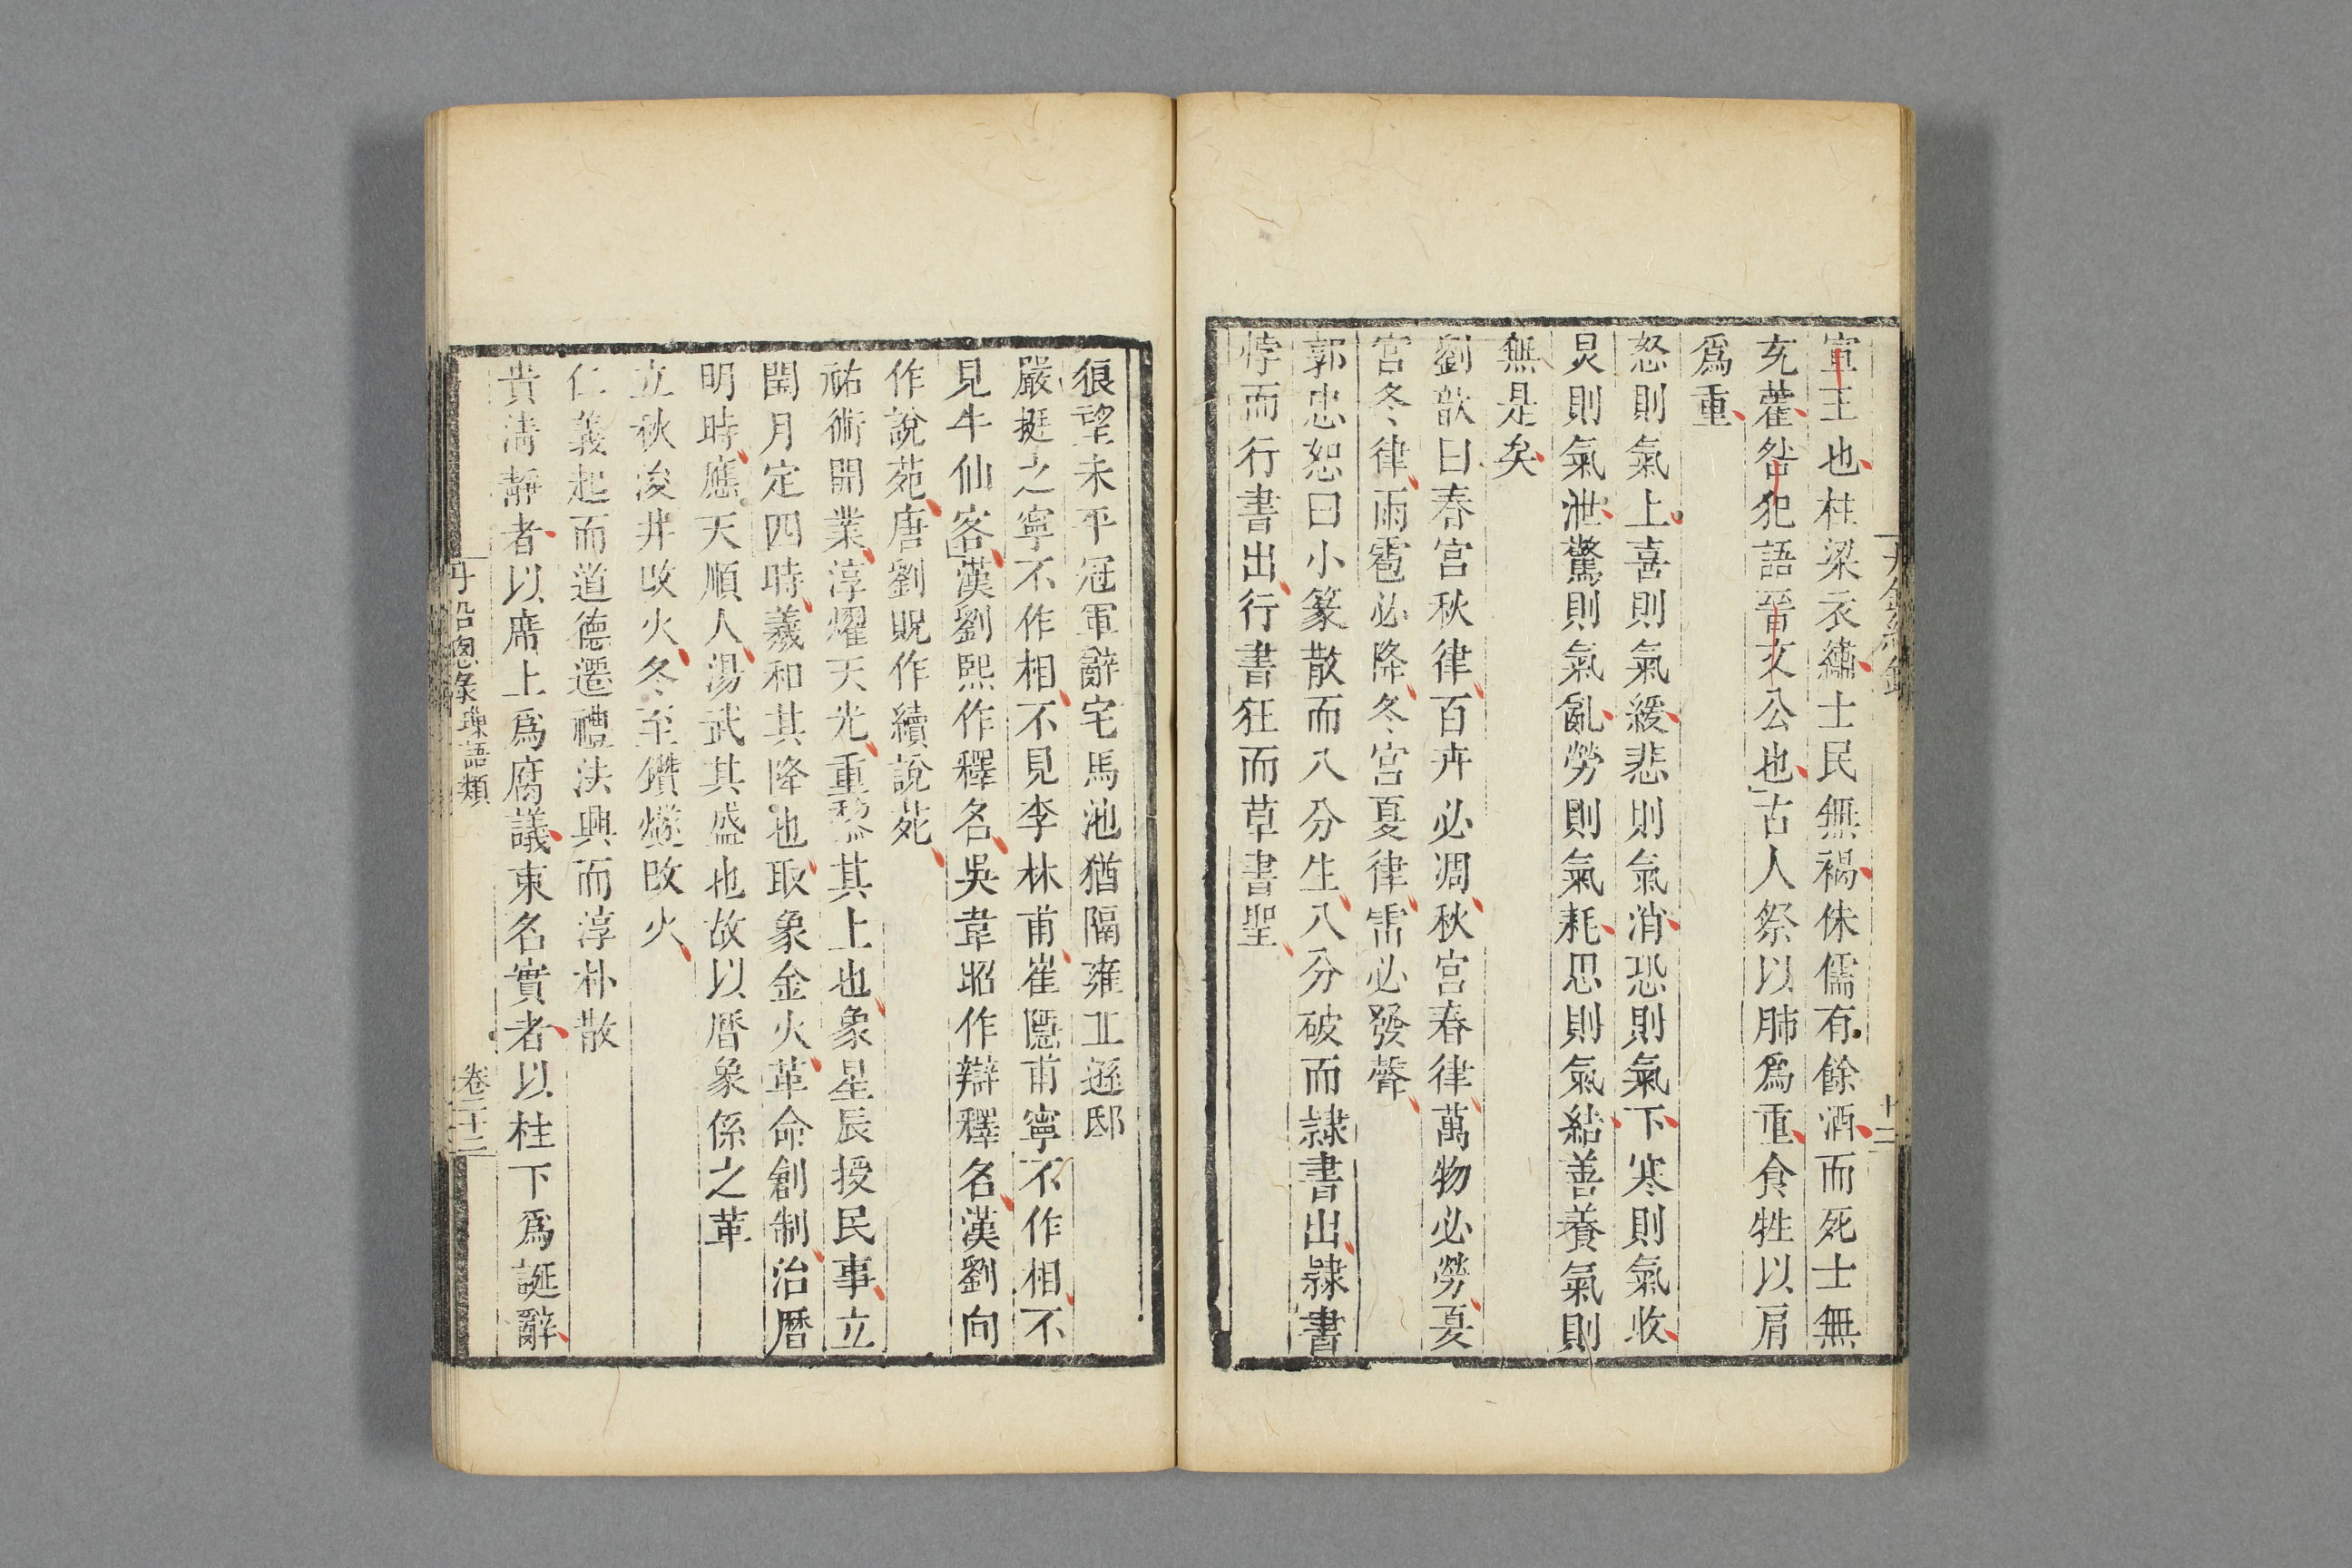 宣王也柱梁衣繡士民無褐侏儒有餘酒而死士無
充藿咎犯語晉文公也古人祭以肺爲重食牲以肩
爲重
怒則氣上喜則氣緩悲則氣消恐則氣下寒則氣收
炅則氣泄驚則氣亂勞則氣耗思則氣結善養氣則
無是矣
劉歆曰春宫秋律百卉必凋秋宫春律萬物必勞夏
宫冬律雨雹必降冬宫夏律雷必發聲
郭忠恕曰小篆散而八分生八分破而隷書出隷書
悖而行書出行書狂而草書聖
狼望未平冠軍辭宅馬池猶隔雍丘遜邸
嚴挺之寧不作相不見李林甫崔隱甫寧不作相不
見牛仙客漢劉熙作釋名吳韋昭作辯釋名漢劉向
作說苑唐劉貺作續說苑
祐術開業淳燿天光重黎其上也象星辰授民事立
閏月定四時羲和其降也取象金火革命創制治曆
明時應天順人湯武其盛也故以曆象係之革
立秋浚井改火冬至鑽燧改火
仁義起而道德遷禮法興而淳朴散
貴清靜者以席上爲腐議束名實者以柱下爲誕辭
丹鉛總錄 瑣語類 卷二十二